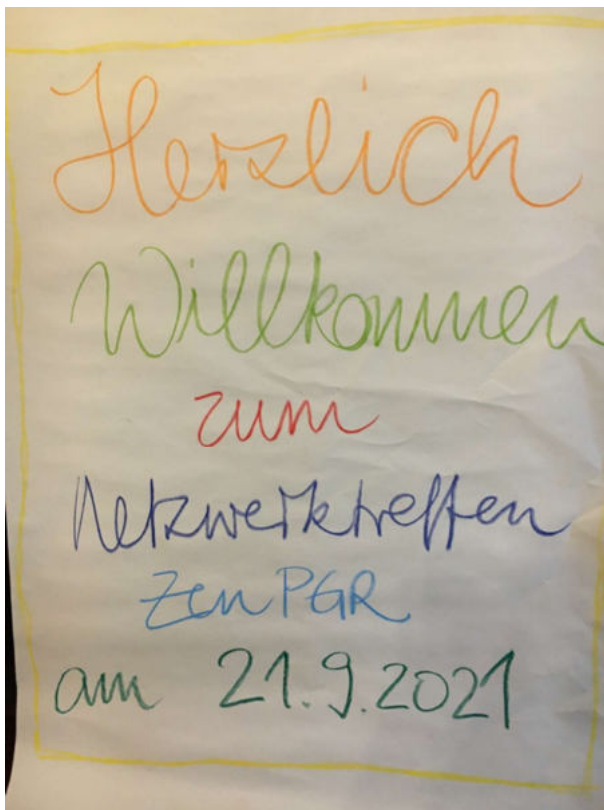 Herzlich
Willkommen
zum
Netzwerktreffen
ZenPGR
am 21.9.2021